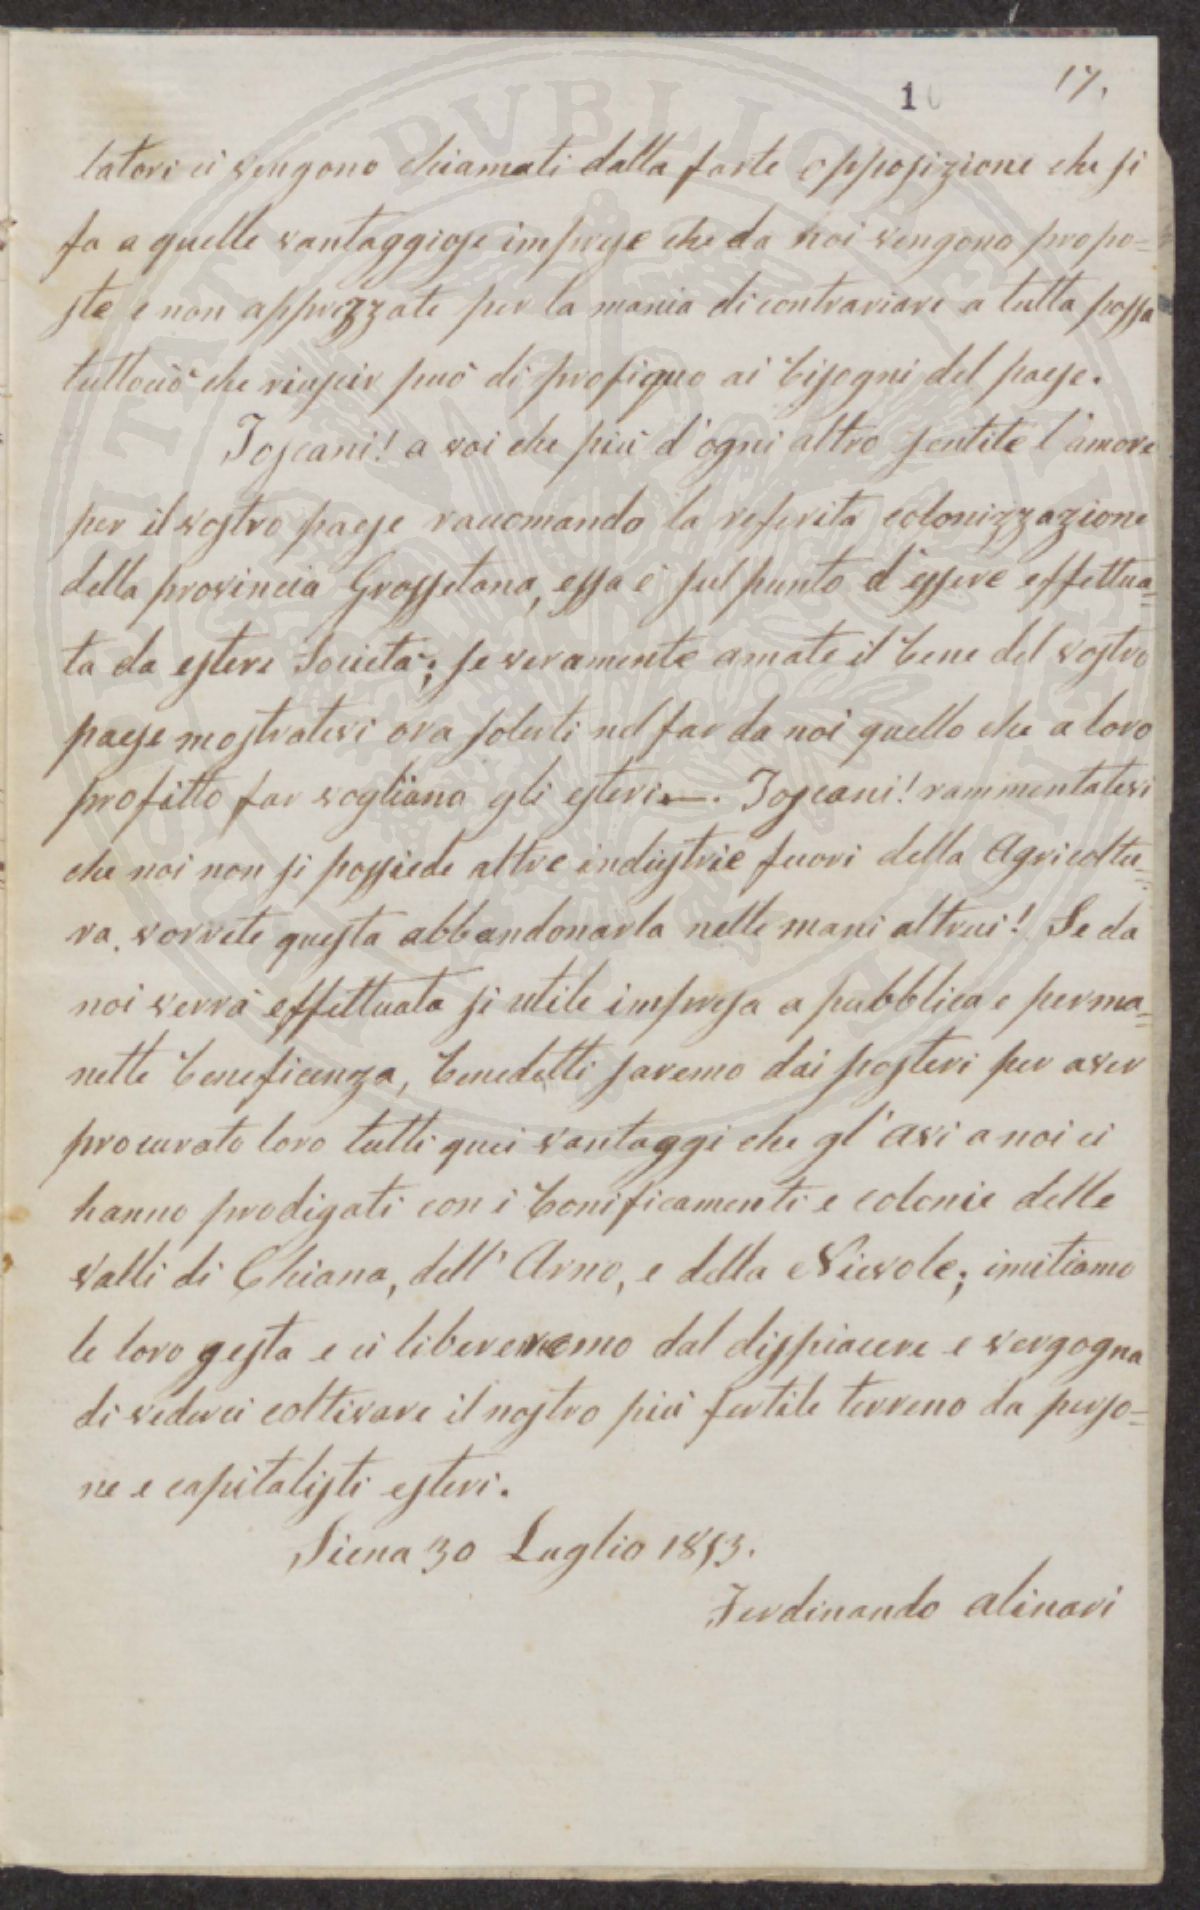 10 17.
latori ci vengono chiamati dalla forte opposizione che si
fa a quelle vantaggiose imprese che da noi vengono propo=
ste e non apprezzate per la mania di contrariare a tutta possa
tuttociò che riuscir può di proficuo ai bisogni del paese.
Toscani! a voi che più d'ogni altro sentite l'amore
per il vostro paese raccomando la referita colonizzazione
della provincia Grossetana, essa è sul punto d'essere effettua=
ta da estere Società; se veramente amate il bene del vostro
paese mostratevi ora solerti nel far da noi quello che a loro
profitto far vogliano gli esteri —. Toscani! rammentatevi
che noi non si possiede altre industrie fuori della Agricoltu=
ra. vorrete questa abbandonarla nelle mani altrui! Se da
noi verrà effettuata si utile impresa a pubblica e perma=
nette beneficenza, benedetti saremo dai posteri per aver
procurato loro tutti quei vantaggi che gl'avi a noi ci
hanno prodigati con i bonificamenti e colonie delle
Valli di Chiana, dell'Arno, e della Nievole; imitiamo
le loro gesta e ci libereremo dal dispiacere e vergogna
di vederci coltivare il nostro più fertile terreno da perso=
ne e capitalisti esteri.
Siena 30 Luglio 1853.
Ferdinando Alinari